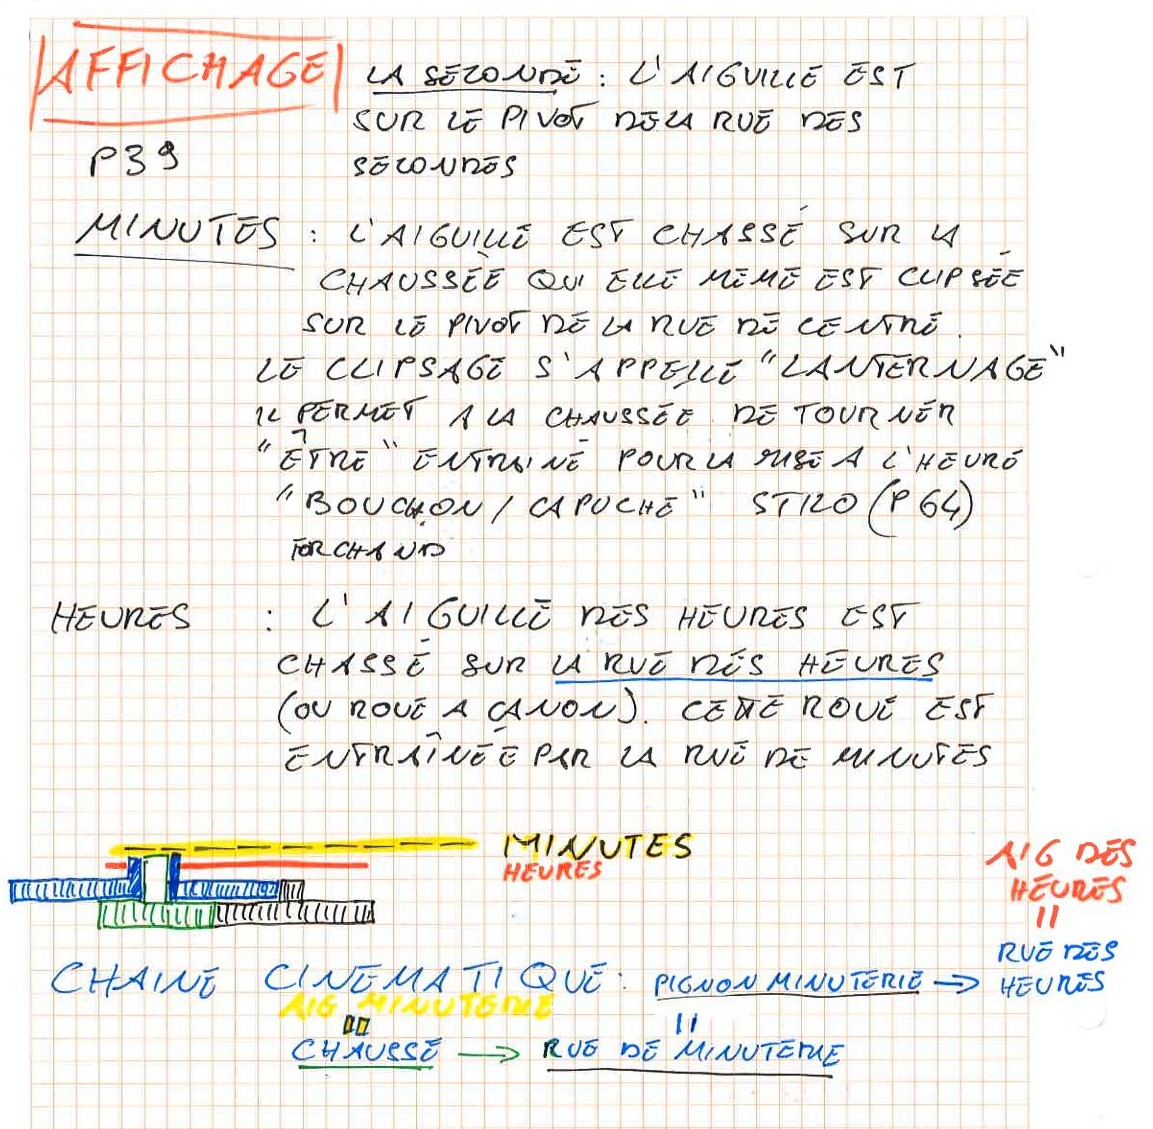 AFFICHAGE
P39
LA SECONDE : L'AIGUILLE EST
SUR LE PIVOT DE LA RUE DES
SECONDES
MINUTES : L'AIGUILLE EST CHASSÉ SUR LA
CHAUSSÉE QUI ELLE MEME EST CLIPSÉE
SUR LE PIVOT DE LA RUE DE CENTRE.
LE CLIPSAGE S'APPELLE "LANTERNAGE"
IL PERMET A LA CHAUSSÉE DE TOURNER
"ÊTRE" ENTRAINÉ POUR LA MISE A L'HEURE
"BOUCHON / CAPUCHE" STILO (P 64)
HEURES : L'AIGUILLE DES HEURES EST
CHASSÉ SUR LA RUE DES HEURES
(OU ROUE A CANON). CETTE ROUE EST
ENTRAÎNÉE PAR LA RUE DE MINUTES
MINUTES
HEURES
AIG DES
HEURES
=
RUE DES
HEURES
CHAINE CINEMATIQUE : PIGNON MINUTERIE →
AIG MINUTERIE
= =
CHAUSSÉ → RUE DE MINUTERIE